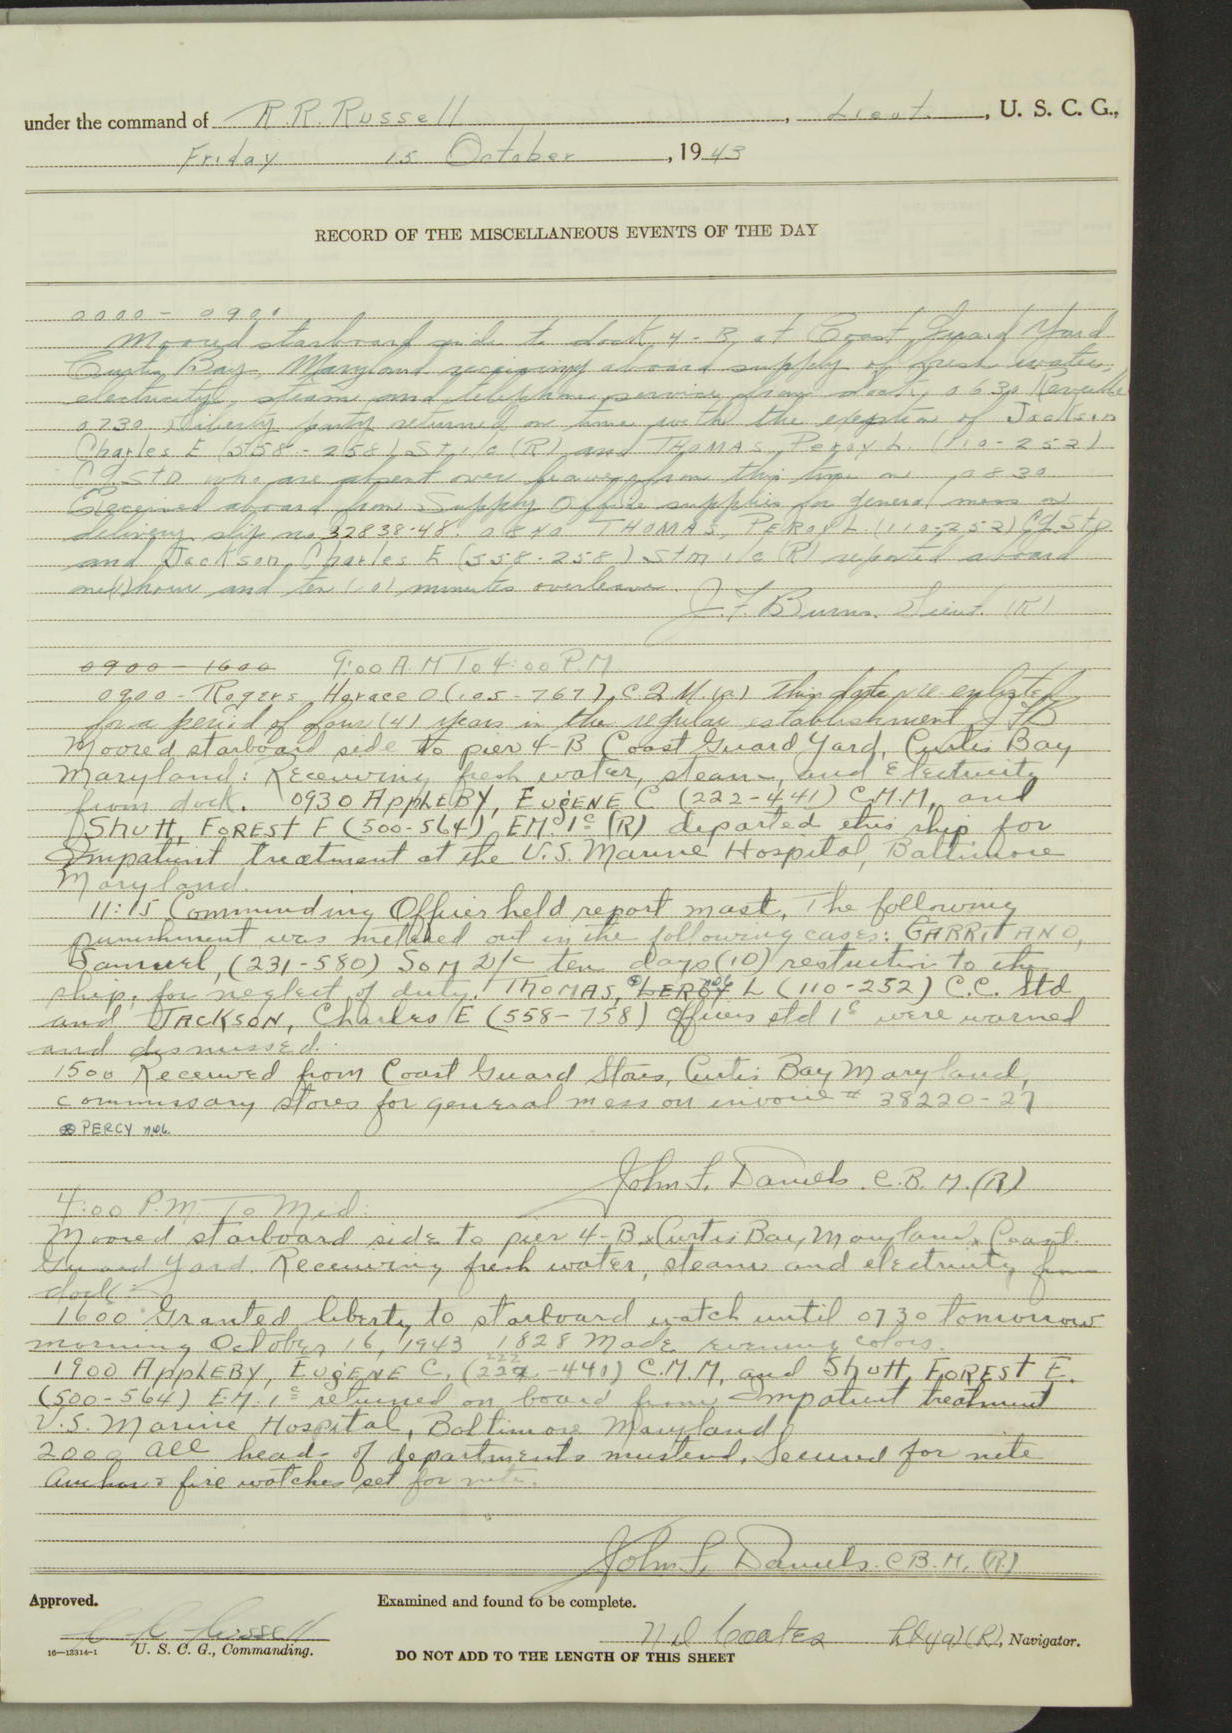 under the command of R. R. Russell, Lieut., U. S. C. G.,
Friday 15 October, 1943
RECORD OF THE MISCELLANEOUS EVENTS OF THE DAY
0000 - 0900
Moored starboard side to dock, 4-B, at Coast Guard Yard
Curtis Bay, Maryland receiving aboard supply of fresh water,
electricity, steam and telephone service from dock, 0630 Reveille
0730 Liberty party returned on time with the exeption of Jackson
Charles E (558-258) St. 1/c (R) and THOMAS, Percy L. (110-252)
Cd StD who are absent over leave from this time on 0830
Received aboard from Supply Office supplies for general mess on
delivery slip no 32838-48. 0840 THOMAS, PERCY L (110-252) Cd. Std
and Jackson, Charles E (558-258) StM 1/c (R) reported aboard
one(1) hour and ten (10) minutes overleave.
J. F. Burns. Lieut. (R)
0900 - 1600 9:00 A.M To 4:00 P.M
0900 - Rogers, Horace O (105-767), C.Q.M. (a) this date re enlisted
for a period of four (4) years in the regular establishment JFB
Moored starboard side to pier 4-B Coast Guard Yard, Curtis Bay
Maryland: Receiving fresh water, steam, and Electricity
from dock. 0930 AppLEBY, EugENE C (222-441) C.M.M, and
Shutt, FOREST F (500-564) EM. 1c (R) departed this ship for
Impatient treatment at the U.S. Marine Hospital, Baltimore
Maryland.
11:15 Commanding Officer held report mast, The following
punishment was metered out in the following cases: GARRITANO,
Samuel, (231-580) SoM 2/c ten days (10) restriction to the
ship, for neglect of duty. THOMAS, LEROY L (110-252) C.C. Std
and JACKSON, Charles E (558-758) Officers std 1c were warned
and dismissed.
1500 Received from Coast Guard Stores, Curtis Bay Maryland,
commissary stores for general mess on invoice # 38220-27
⊗ PERCY
John F. Daniels C.B.M. (R)
4:00 P.M. To Mid:
Moored starboard side to pier 4-B x Curtis Bay, Maryland x Coast
Guard Yard. Receiving fresh water, steam and electricity from
dock:-
1600 Granted liberty to starboard watch until 0730 tomorrow
morning October 16, 1943 1828 Made evening colors.
1900 AppLEBY, EugENE C. (222-441) C.M.M, and Shutt, FOREST E.
(500-564) E.M. 1c returned on board from Impatient treatment
U.S. Marine Hospital, Baltimore Maryland
2000 All heads of departments mustered. Secured for nite
Anchor & fire watches set for nite.
John F. Daniels C.B.M. (R)
Approved. Examined and found to be complete.
R R Russell
N D Coates Lt(jg)(R), Navigator.
16—13314-1 U. S. C. G., Commanding.
DO NOT ADD TO THE LENGTH OF THIS SHEET